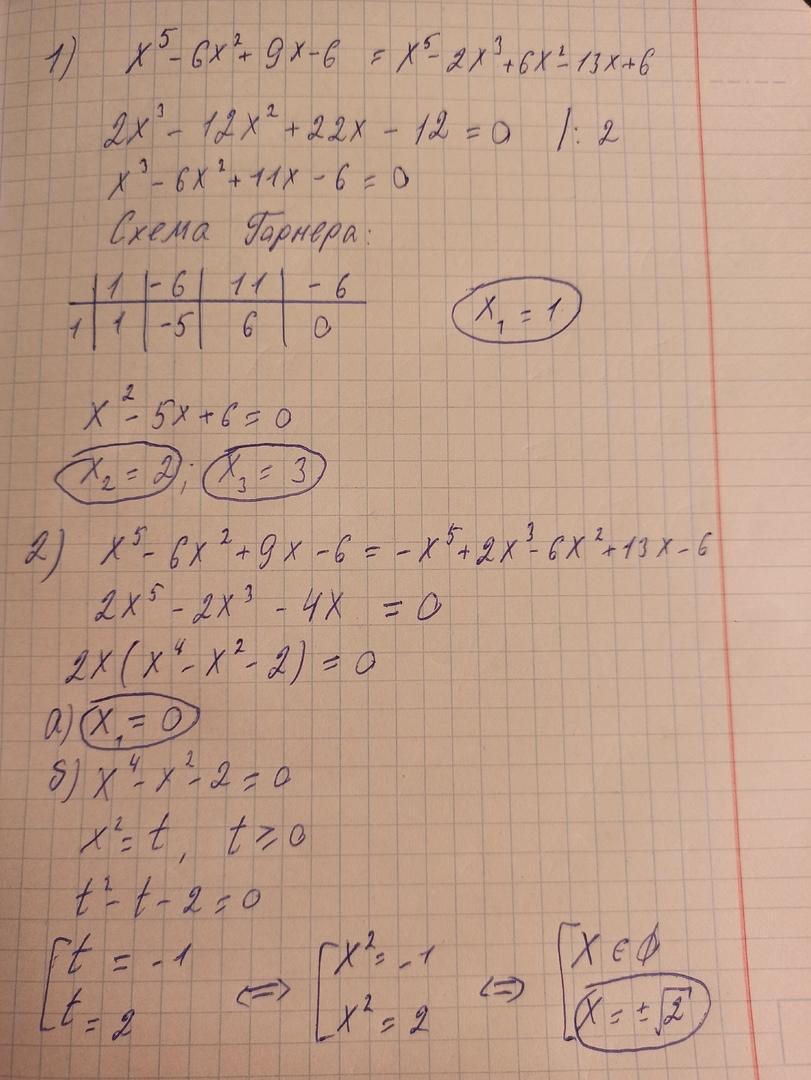 1) x⁵ - 6x² + 9x - 6 = x⁵ - 2x³ + 6x² - 13x + 6
2x³ - 12x² + 22x - 12 = 0 |: 2
x³ - 6x² + 11x - 6 = 0
Схема Горнера:
| 1 | -6 | 11 | -6
1 | 1 | -5 | 6 | 0
x₁ = 1
x² - 5x + 6 = 0
x₂ = 2; x₃ = 3
2) x⁵ - 6x² + 9x - 6 = -x⁵ + 2x³ - 6x² + 13x - 6
2x⁵ - 2x³ - 4x = 0
2x(x⁴ - x² - 2) = 0
а) x₁ = 0
б) x⁴ - x² - 2 = 0
x² = t, t ≥ 0
t² - t - 2 = 0
[ t = -1 [ x² = -1 [ x ∈ ∅
t = 2 <=> x² = 2 <=> x = ±√2